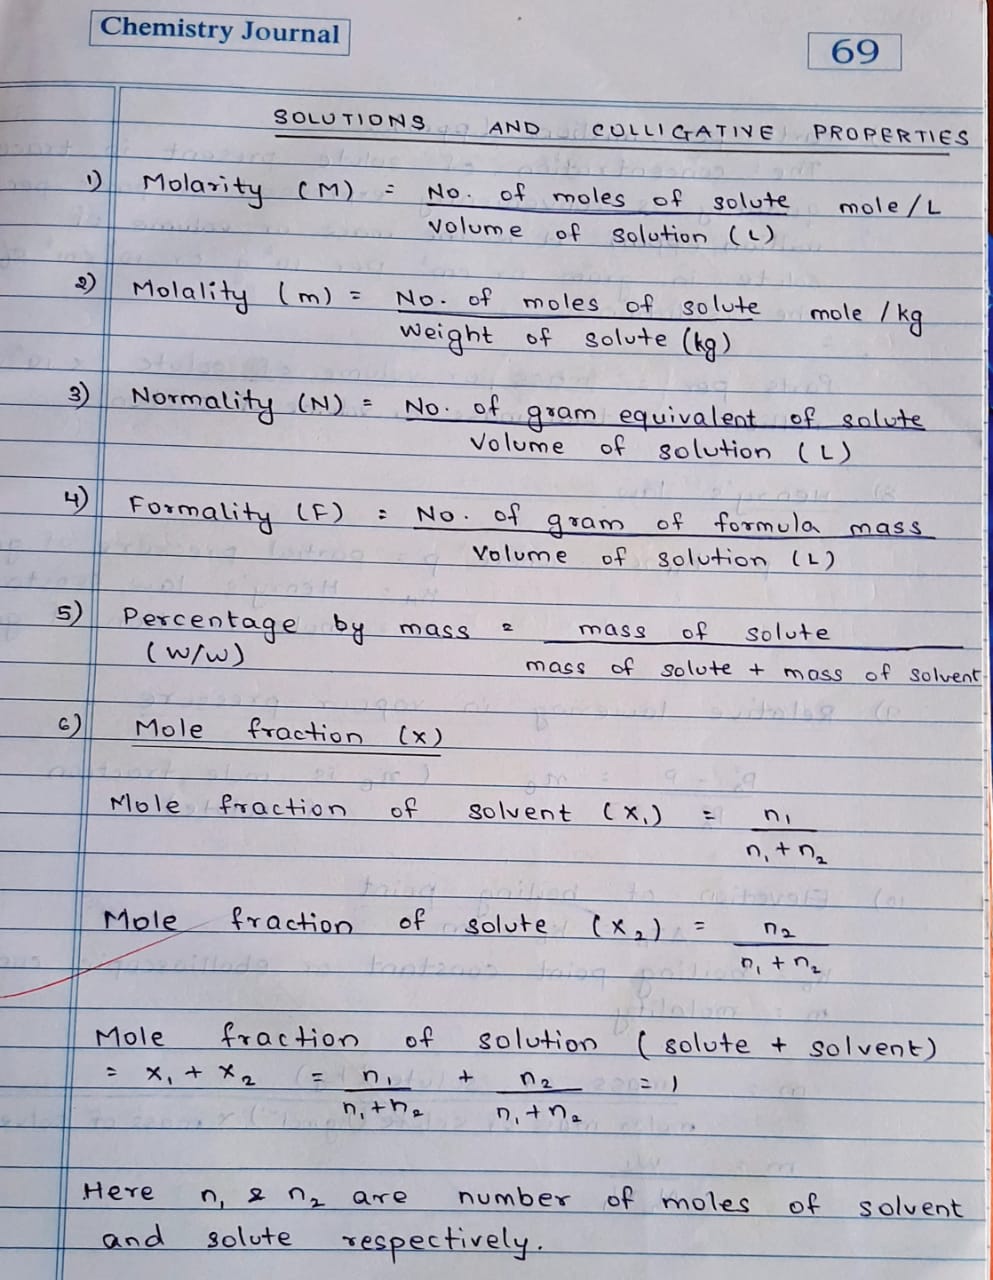 Chemistry Journal
69
SOLUTIONS AND COLLIGATIVE PROPERTIES
1) Molarity (M) = No. of moles of solute mole/L
Volume of solution (L)
2) Molality (m) = No. of moles of solute mole/kg
Weight of solute (kg)
3) Normality (N) = No. of gram equivalent of solute
Volume of solution (L)
4) Formality (F) = No. of gram of formula mass
Volume of solution (L)
5) Percentage by mass = mass of solute
(W/W) mass of solute + mass of solvent
6) Mole fraction (x)
Mole fraction of solvent (x₁) = n₁
n₁ + n₂
Mole fraction of solute (x₂) = n₂
n₁ + n₂
Mole fraction of solution (solute + solvent)
= x₁ + x₂ = n₁ + n₂ = 1
n₁ + n₂ n₁ + n₂
Here n₁ & n₂ are number of moles of solvent
and solute respectively.